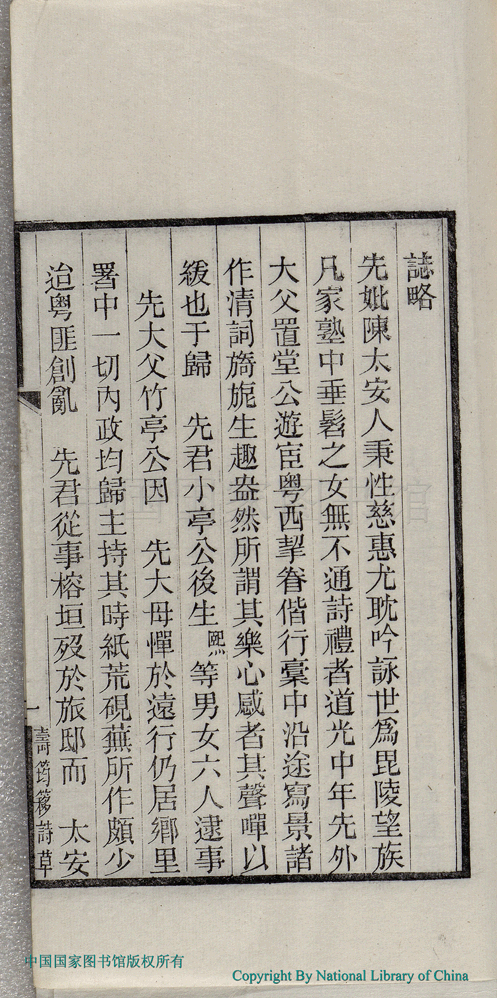 誌略
先妣陳太安人秉性慈惠尤耽吟詠世爲毘陵望族
凡家塾中垂髫之女無不通詩禮者道光中年先外
大父置堂公遊宦粵西挈眷偕行橐中沿途寫景諸
作清詞旖旎生趣盎然所謂其樂心感者其聲嘽以
緩也于歸　先君小亭公後生熙等男女六人逮事
先大父竹亭公因　先大母憚於遠行仍居鄉里
署中一切內政均歸主持其時紙荒硯蕪所作頗少
迨粵匪創亂　先君從事榕垣歿於旅邸而　太安
一　壽筠簃詩草
中国国家图书馆版权所有
Copyright By National Library of China